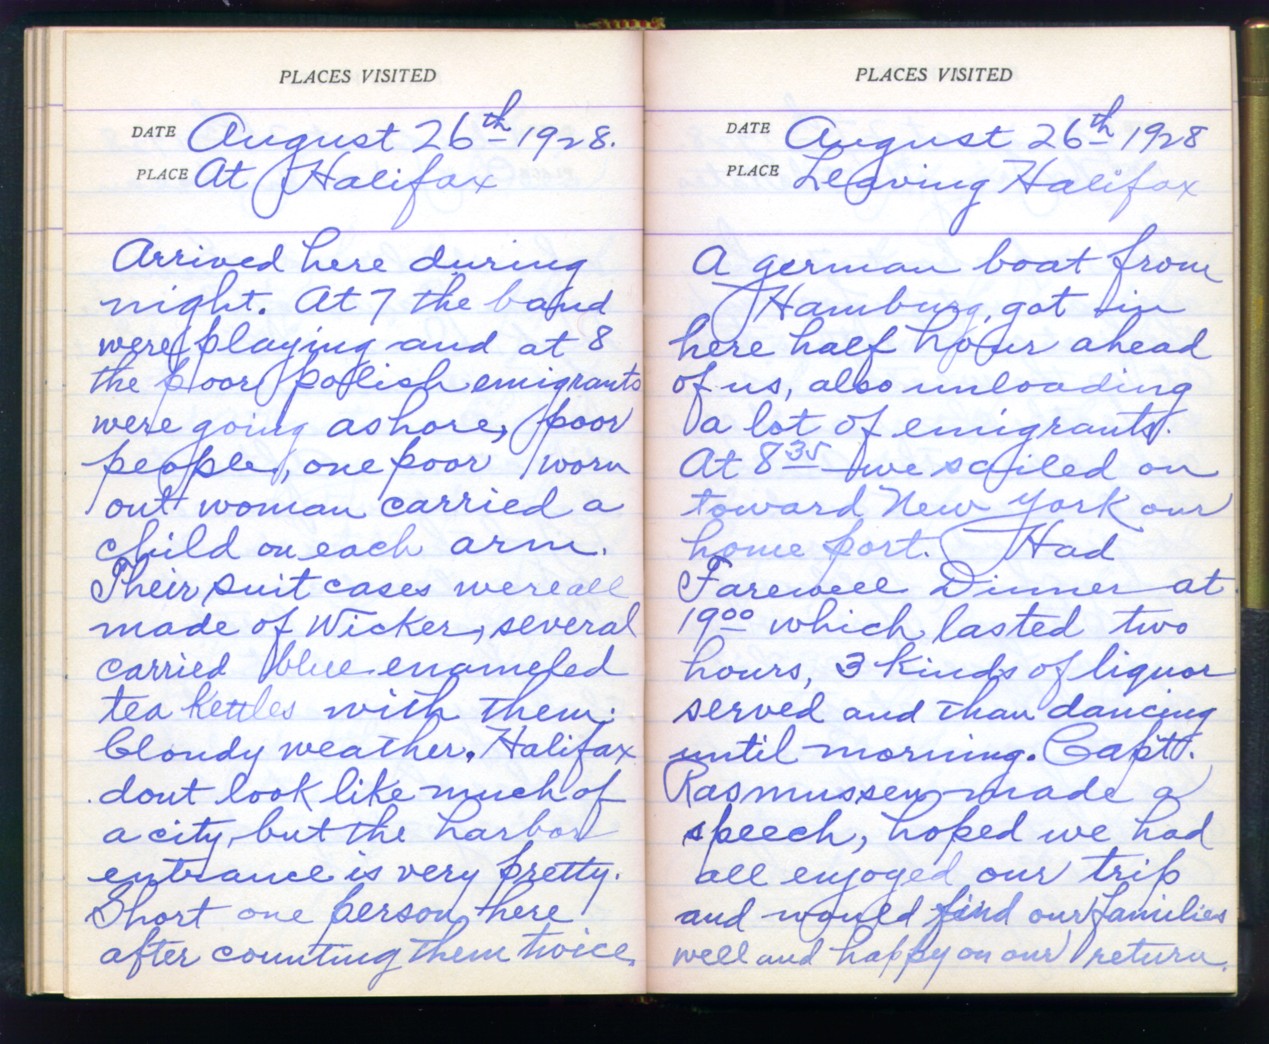 PLACES VISITED
DATE August 26th 1928.
PLACE At Halifax
Arrived here during
night. At 7 the band
were playing and at 8
the poor polish emigrants
were going ashore, poor
people, one poor worn
out woman carried a
child on each arm.
Their suit cases were all
made of Wicker, several
carried blue enameled
tea kettles with them.
Cloudy weather. Halifax
dont look like much of
a city, but the harbor
entrance is very pretty.
Short one person here
after counting them twice.
PLACES VISITED
DATE August 26th 1928
PLACE Leaving Halifax
A german boat from
Hamburg, got in
here half hour ahead
of us, also unloading
a lot of emigrants.
At 8 35 we sailed on
toward New York our
home port. Had
Farewell Dinner at
19 00 which lasted two
hours, 3 kinds of liquor
served and than dancing
until morning. Capt.
Rasmussen made a
speech, hoped we had
all enjoyed our trip
and would find our families
well and happy on our return.